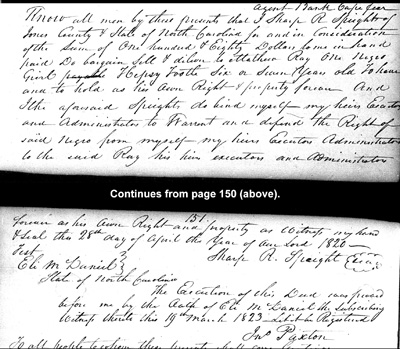 Agent Bank Cape Fear
Know all men by these presents that I Sharp R. Speight of
Jones County & State of North Carolina for and in Consideration
of the Sum of One hundred & Eighty Dollars to me in hand
paid Do bargain Sell & deliver to Matthew Ray One Negro
Girl Hepsey Foote Six or Seven Years old To have
and to hold as his Own Right & property forever And
I the aforesaid Speight do bind myself my heirs Executors
and Administrators to Warrent and defend the Right of
said Negro from myself my heirs Executors Administrators
to the said Ray his heirs executors and Administrators
Continues from page 150 (above).
151.
forever as his Own Right and property as Witness my hand
& Seal this 28th day of April the Year of our Lord 1820
Test
Sharp R. Speight
Eli McDaniel
State of North Carolina
The Execution of this Deed was proved
before me by the Oath of Eli McDaniel the Subscribing
Witness thereto this 19th March 1823 Let it be Registered
Jno. Paxton
To all people to whom these presents shall come